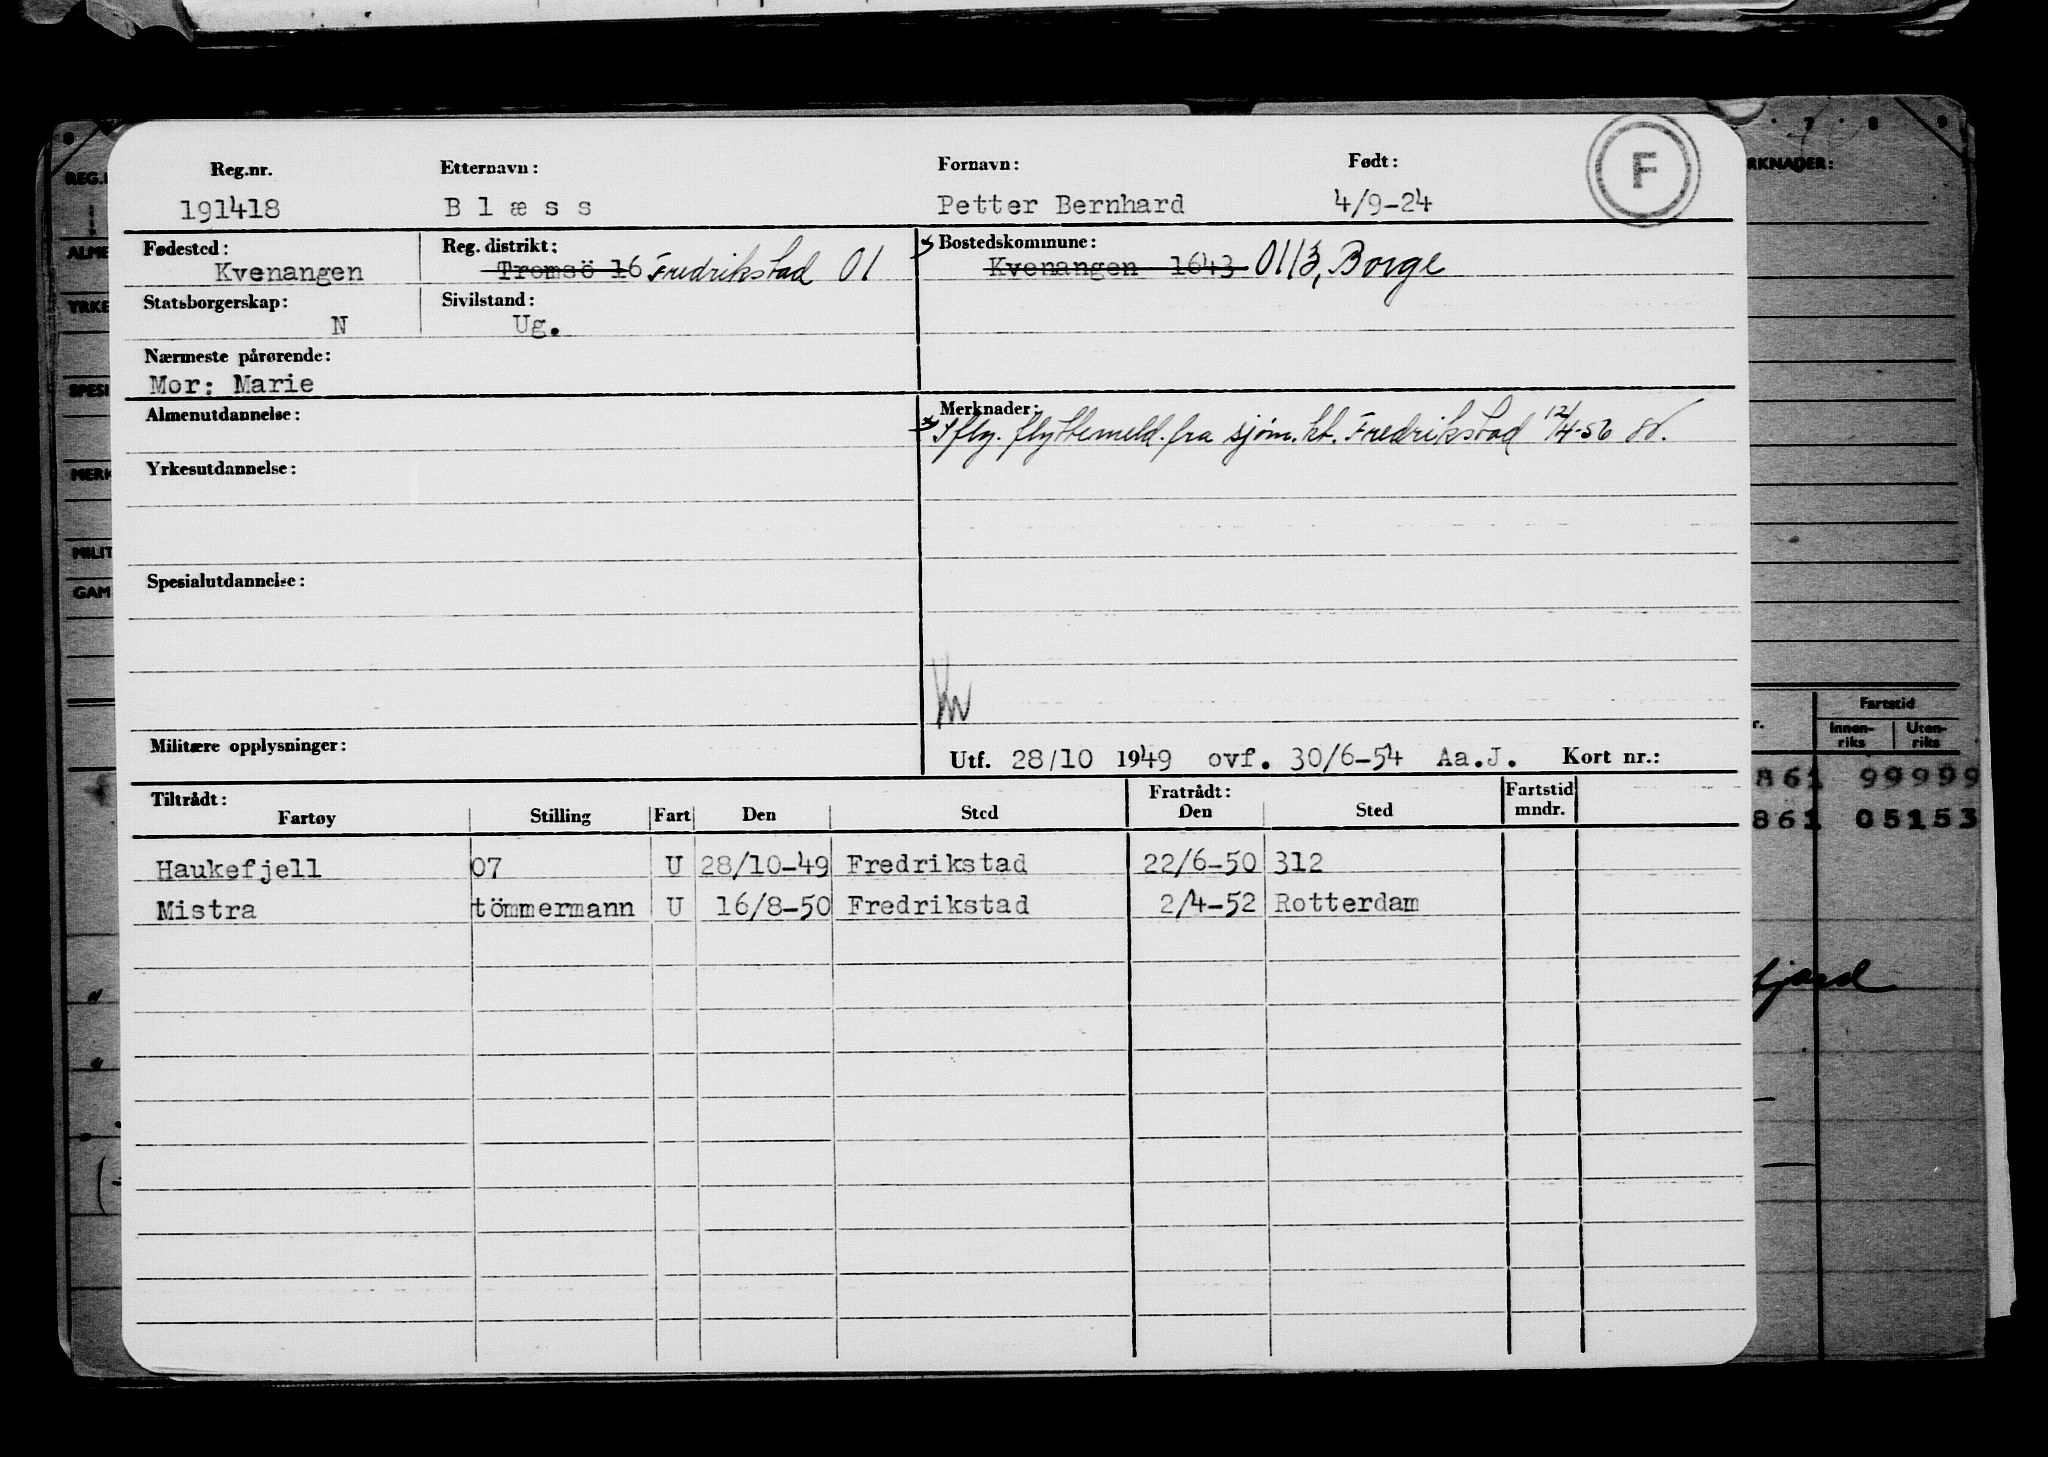 Reg.nr. Etternavn: Fornavn: Født: F
191418 Blæss Petter Bernhard 4/9-24
Fødested: Reg. distrikt: Bostedskommune:
Kvenangen Tromsö 16 Fredrikstad 01 Kvenangen 1643 0113, Borge
Statsborgerskap: Sivilstand:
N Ug.
Nærmeste pårørende:
Mor: Marie
Almenutdannelse: Merknader:
Iflg. flyttemeld. fra sjøm.kt. Fredrikstad 12/4-56
Yrkesutdannelse:
Spesialutdannelse:
Militære opplysninger: Utf. 28/10 1949 ovf. 30/6-54 Aa.J. Kort nr.:
Tiltrådt: Fratrådt: Fartstid
Fartøy Stilling Fart Den Sted Den Sted mndr.
Haukefjell 07 U 28/10-49 Fredrikstad 22/6-50 312
Mistra tömmermann U 16/8-50 Fredrikstad 2/4-52 Rotterdam
7 8 9
RKNADER:
REG.
ALME
YRKE
SPESI
MERK
MILIT
GAM
Fartstid
r. Innen-riks Uten-riks
861 99999
861 05153
fjord